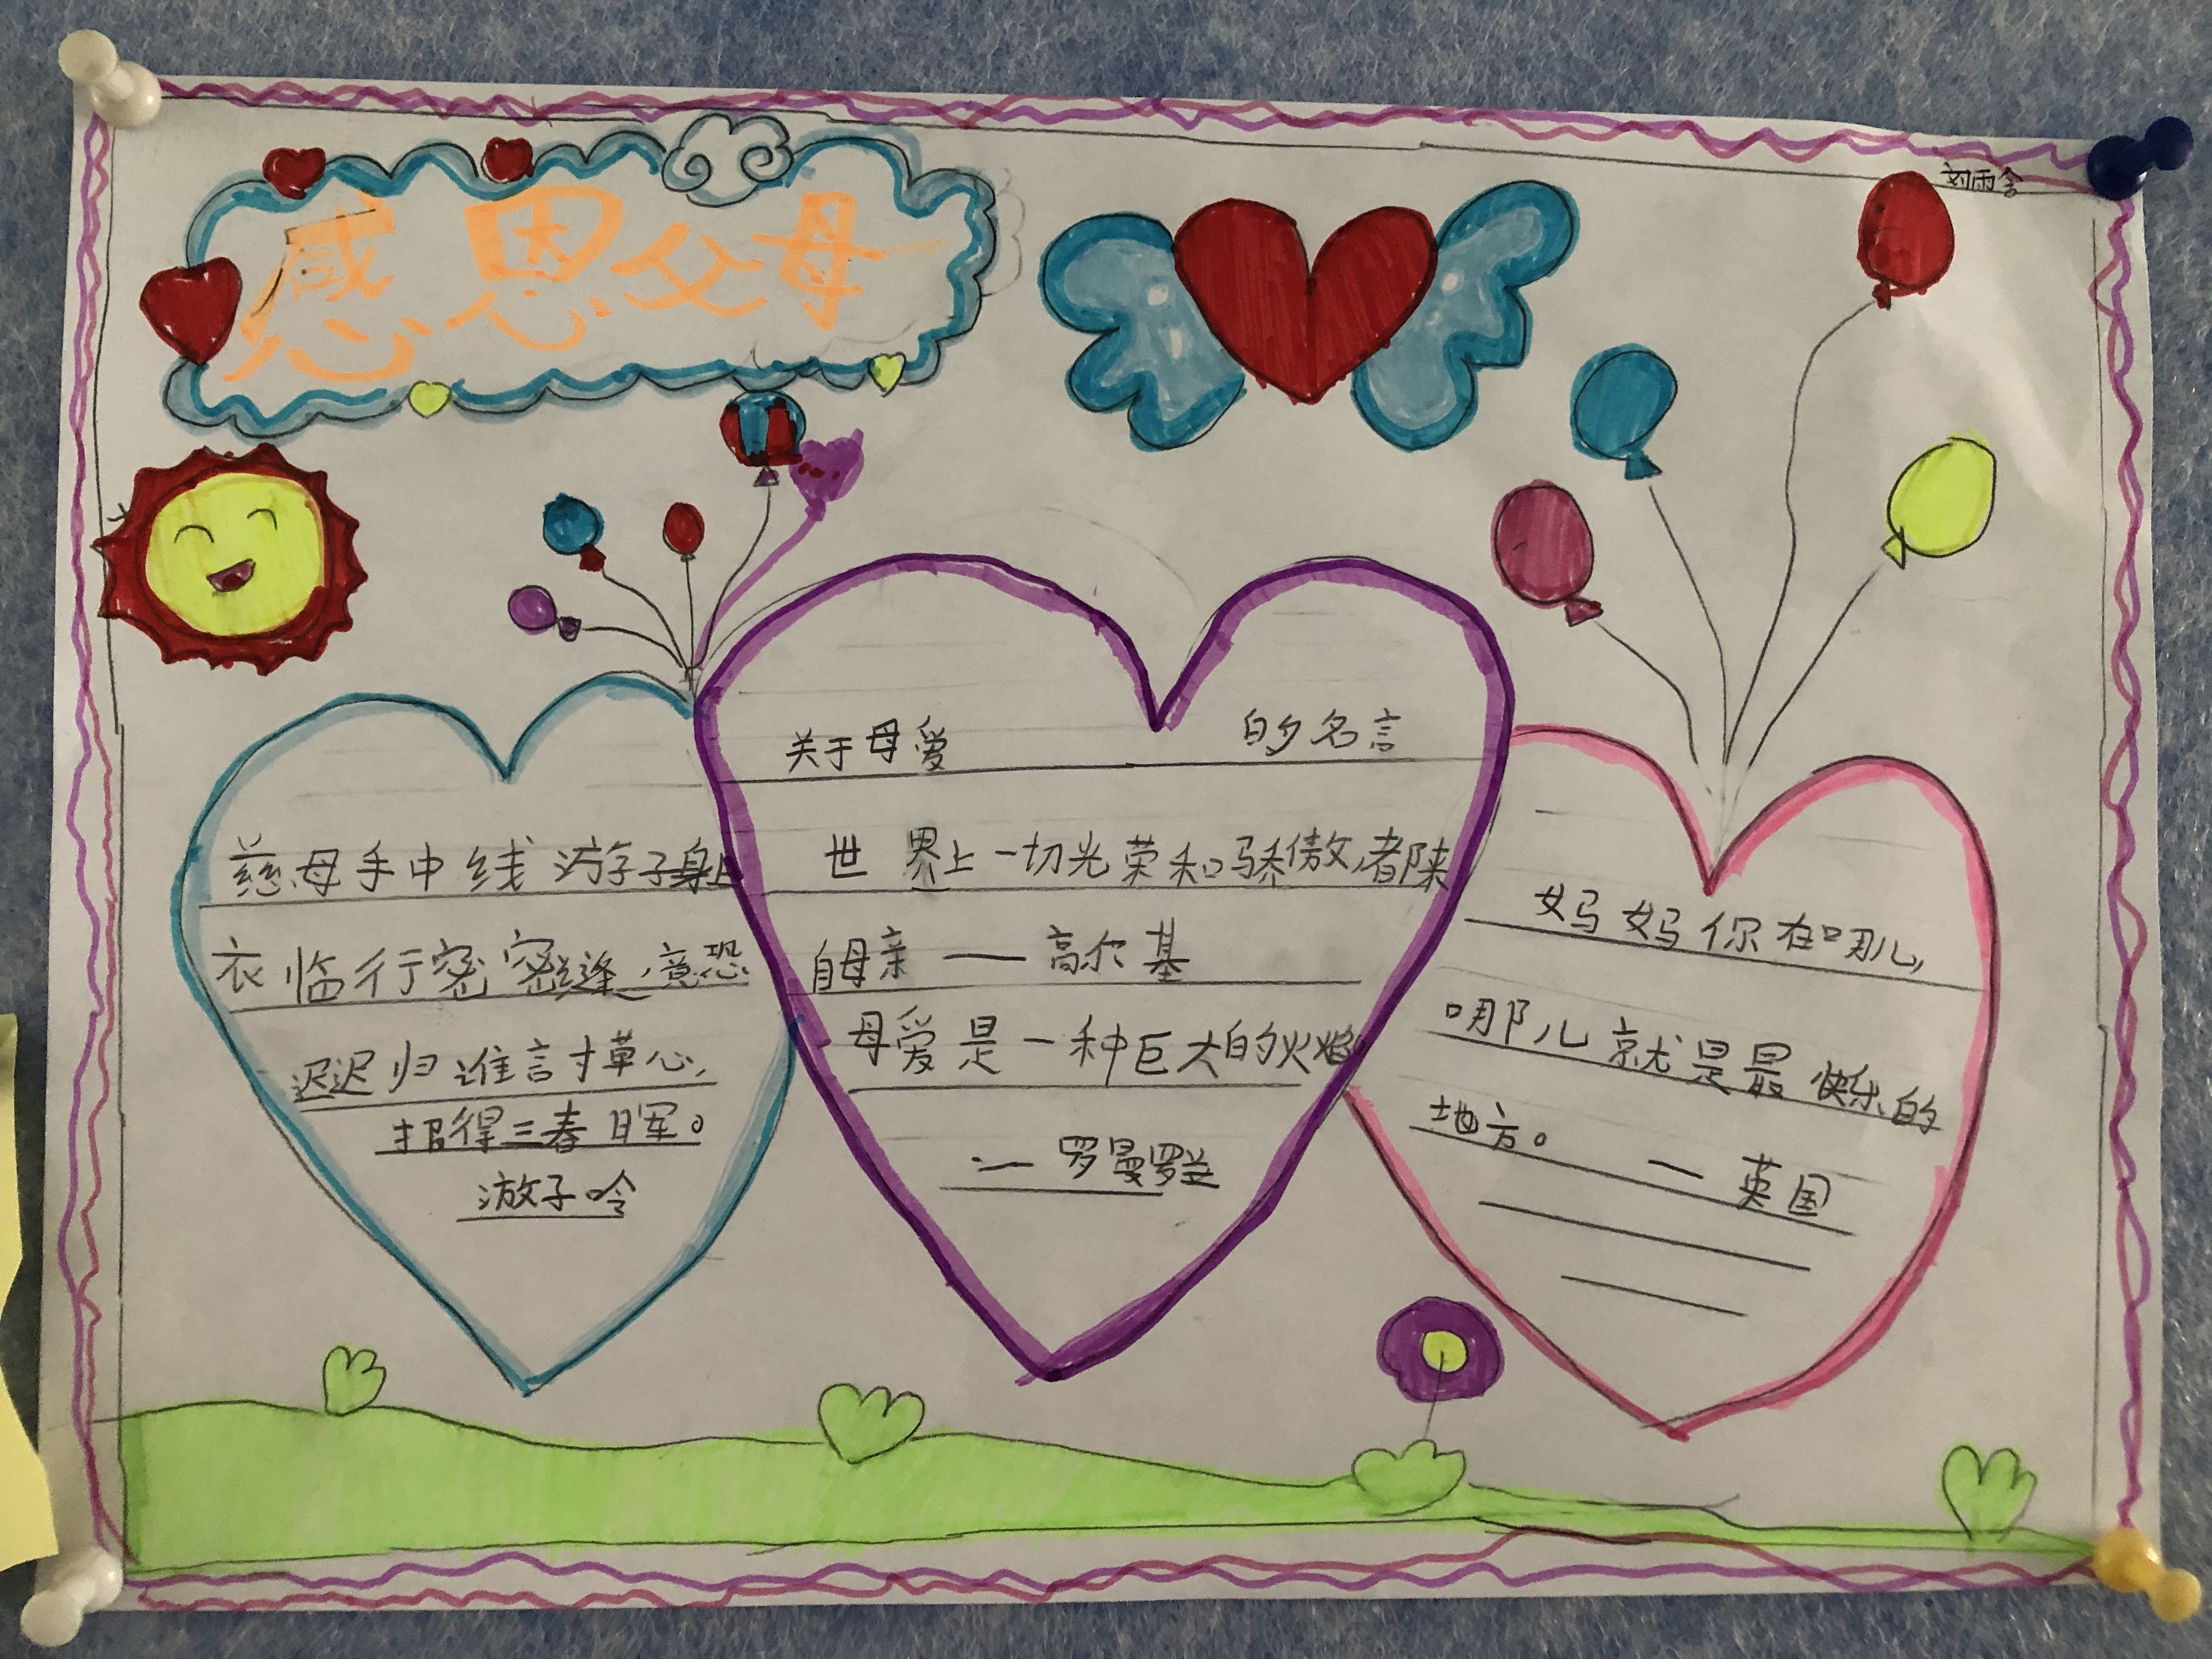 感恩父母
刘雨含
慈母手中线游子身上
衣临行密密缝,意恐
迟迟归谁言寸草心,
报得三春日军。
游子吟
关于母爱 的名言
世界上一切光荣和骄傲,都来
自母亲——高尔基
母爱是一种巨大的火焰
——罗曼罗兰
妈妈你在哪儿,
哪儿就是最快乐的
地方。 —英国